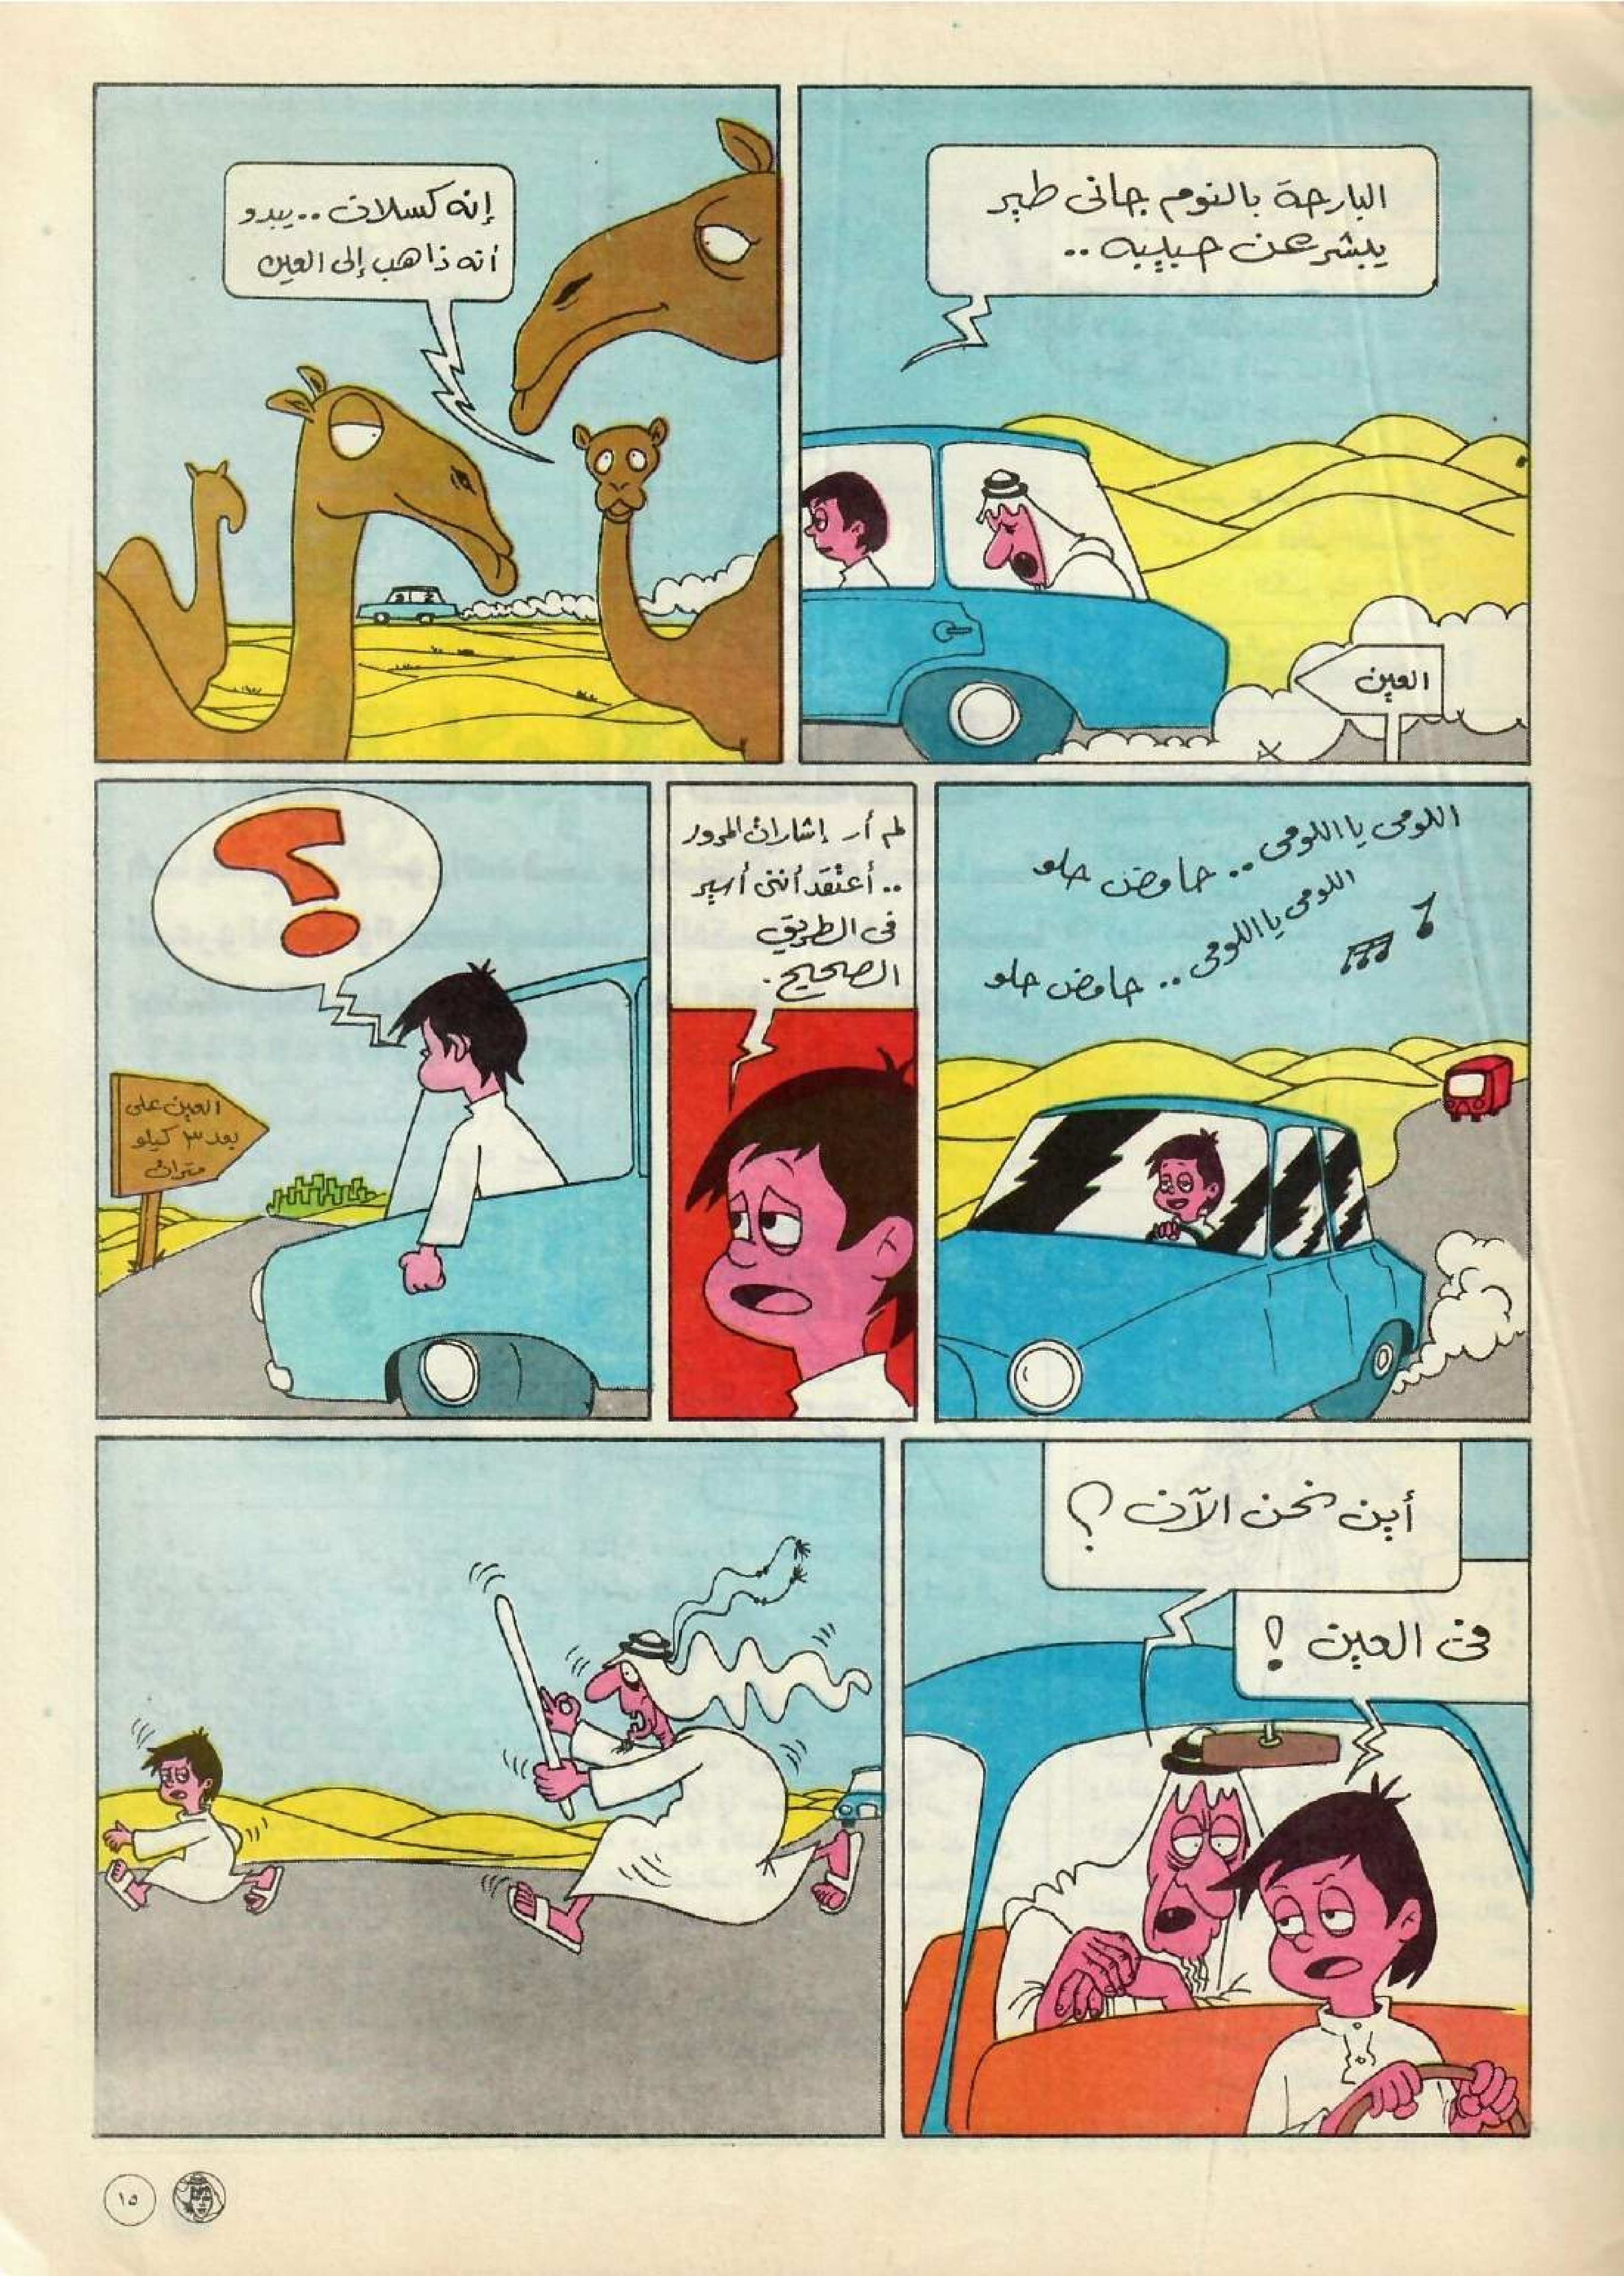 البارحة بالنوم جانى طير
يبشر عن حبيبه ..
العين
إنه كسلان .. يبدو
أنه ذاهب إلى العين
اللومى يا اللومى .. حامض حلو
اللومى يا اللومى .. حامض حلو
لم أر إشارات المرور
.. أعتقد أننى أسير
فى الطريق
الصحيح .
؟
العين على
بعد ٣ كيلو
مترات
أين نحن الآن ؟
فى العين !
١٥